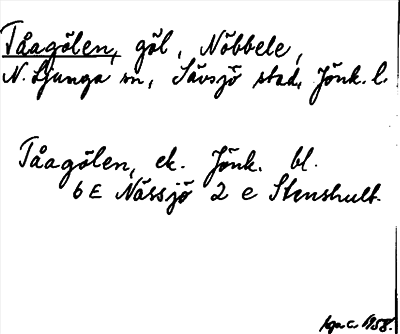 Tåagölen, göl, Nöbbele,
N. Ljunga sn, Sävsjö stad, Jönk. l.
Tåagölen, ek. Jönk. bl.
6E Nässjö 2 e Stenshult.
1958.